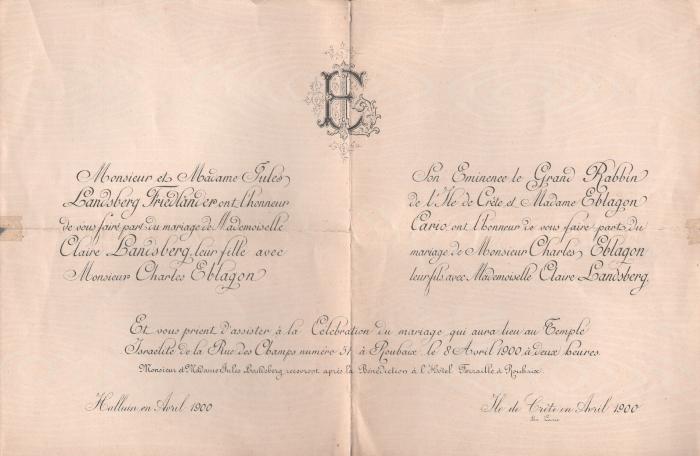 Monsieur et Madame Jules
Landsberg Friedländer ont l'honneur
de vous faire part du mariage de Mademoiselle
Claire Landsberg, leur fille avec
Monsieur Charles Eblagon
Son Eminence le Grand Rabbin
de l'Ile de Crète et Madame Eblagon
Cario, ont l'honneur de vous faire part du
mariage de Monsieur Charles Eblagon
leur fils avec Mademoiselle Claire Landsberg.
Et vous prient d'assister à la Célébration du mariage qui aura lieu au Temple
Israélite de la Rue des Champs numéro 51 à Roubaix, le 8 Avril 1900 à deux heures.
Monsieur et Madame Jules Landsberg recevront après la Bénédiction à l'Hôtel Ferraille à Roubaix.
Halluin en Avril 1900
Ile de Crète en Avril 1900